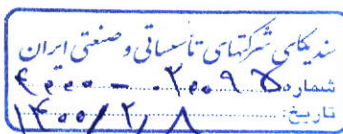 سندیکای شرکتهای تأسیساتی و صنعتی ایران
شماره: ۴۰۰۰ – ۲۰۰۹۵
تاریخ: ۱۴۰۰/۲/۸